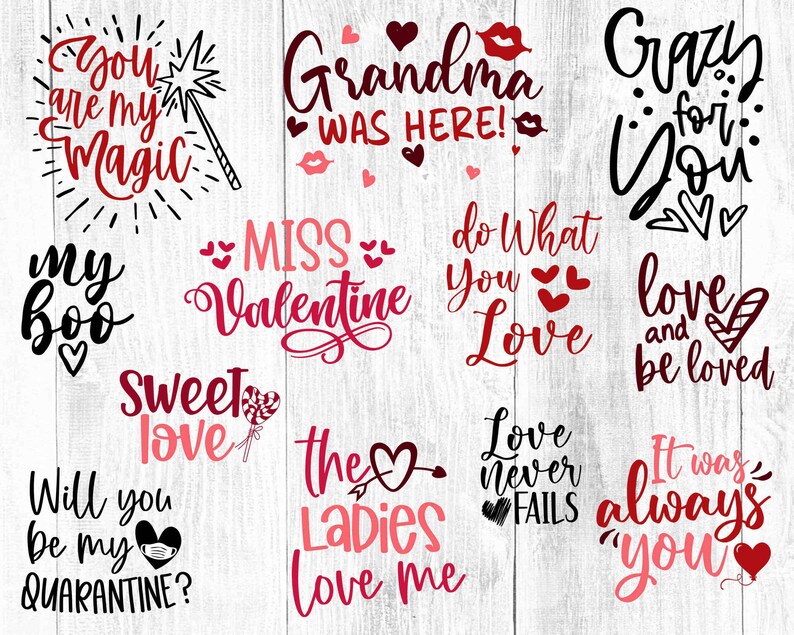 You
are my
Magic
Grandma
WAS HERE!
Crazy
for
You
my
boo
MISS
Valentine
do What
You
Love
love
and
be loved
sweet
love
Will you
be my
QUARANTINE?
the
LADIES
love me
Love
never
FAILS
It was
always
you